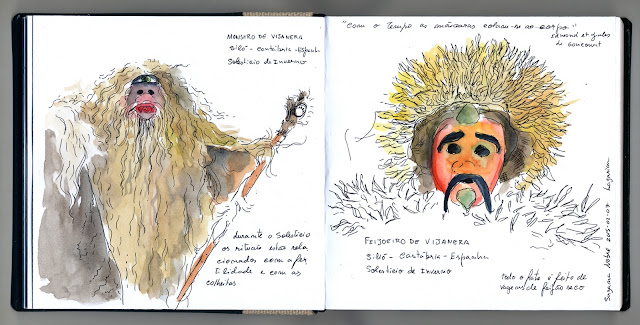 MONSTRO DE VIJANERA
SILIÓ - CANTÁBRIA - ESPANHA
SOLSTÍCIO DE INVERNO
durante o Solstício
os rituais estão rela
cionados com a fer
tilidade e com as
colheitas
"Com o tempo as máscaras colam-se ao corpo"
Edmond et Jules
de Goncourt
FEIJOEIRO DE VIJANERA
SILIÓ - CANTÁBRIA - ESPANHA
SOLSTÍCIO DE INVERNO
todo o fato é feito de
vagens de feijão seco
Suzana Nobre Lazarim